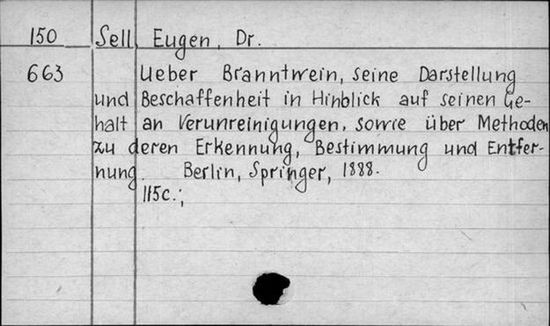 150 Sell Eugen, Dr.
663 Ueber Branntwein, seine Darstellung
und Beschaffenheit in Hinblick auf seinen Ge-
halt an Verunreinigungen, sowie über Methoden
zu deren Erkennung, Bestimmung und Entfer-
nung. Berlin, Springer, 1888.
115c.;